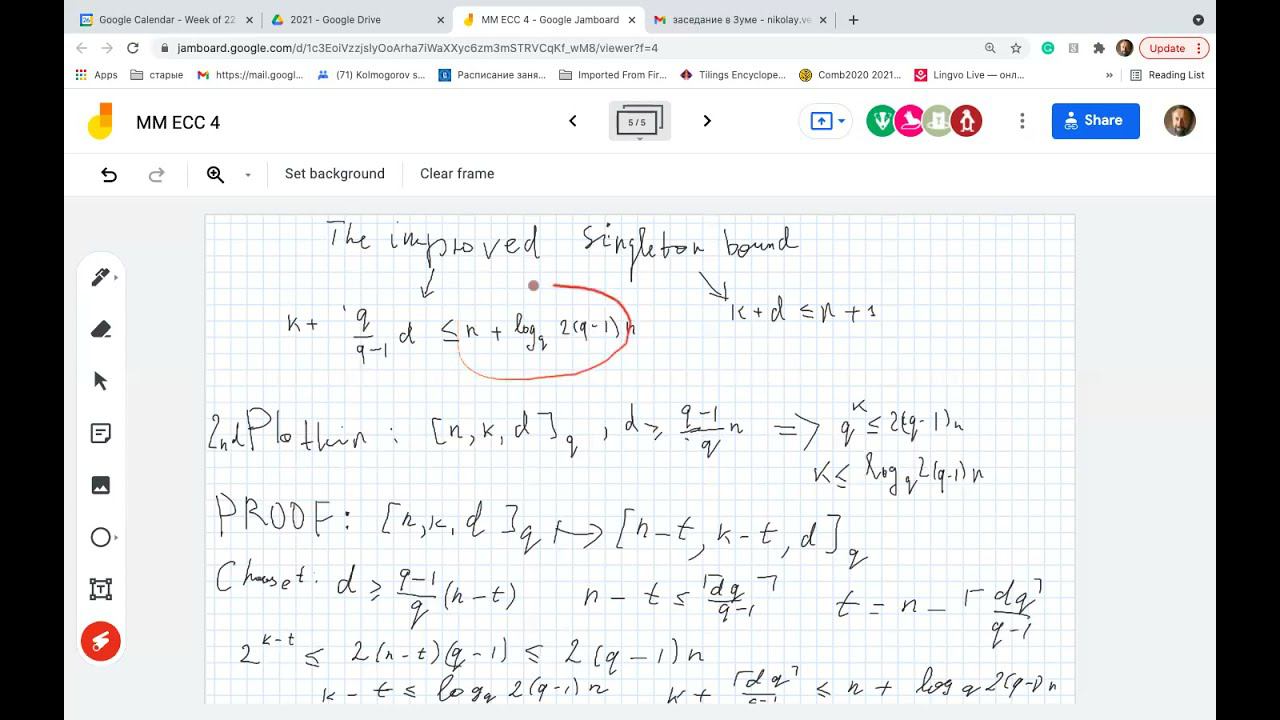 Google Calendar - Week of 22
2021 - Google Drive
MM ECC 4 - Google Jamboard
заседание в Зуме - nikolay.ve
jamboard.google.com/d/1c3EoiVzzjslyOoArha7iWaXXyc6zm3mSTRVCqKf_wM8/viewer?f=4
Update
Apps
старые
https://mail.googl...
(71) Kolmogorov s...
Расписание заня...
Imported From Fir...
Tilings Encyclope...
Comb2020 2021...
Lingvo Live — онл...
»
Reading List
MM ECC 4
5/5
Share
Set background
Clear frame
The improved Singleton bound
k + q/(q-1) d ≤ n + log_q 2(q-1)n
k + d ≤ n + 1
2nd Plotkin: [n, k, d]_q, d ≥ (q-1)/q n => q^k ≤ 2(q-1)n
k ≤ log_q 2(q-1)n
PROOF: [n, k, d]_q ↦ [n-t, k-t, d]_q
Choose t: d ≥ (q-1)/q (n-t) n - t ≤ ⌈dq/(q-1)⌉ t = n - ⌈dq/(q-1)⌉
2^(k-t) ≤ 2(n-t)(q-1) ≤ 2(q-1)n
k - t ≤ log_q 2(q-1)n k + ⌈dq/(q-1)⌉ ≤ n + log_q 2(q-1)n